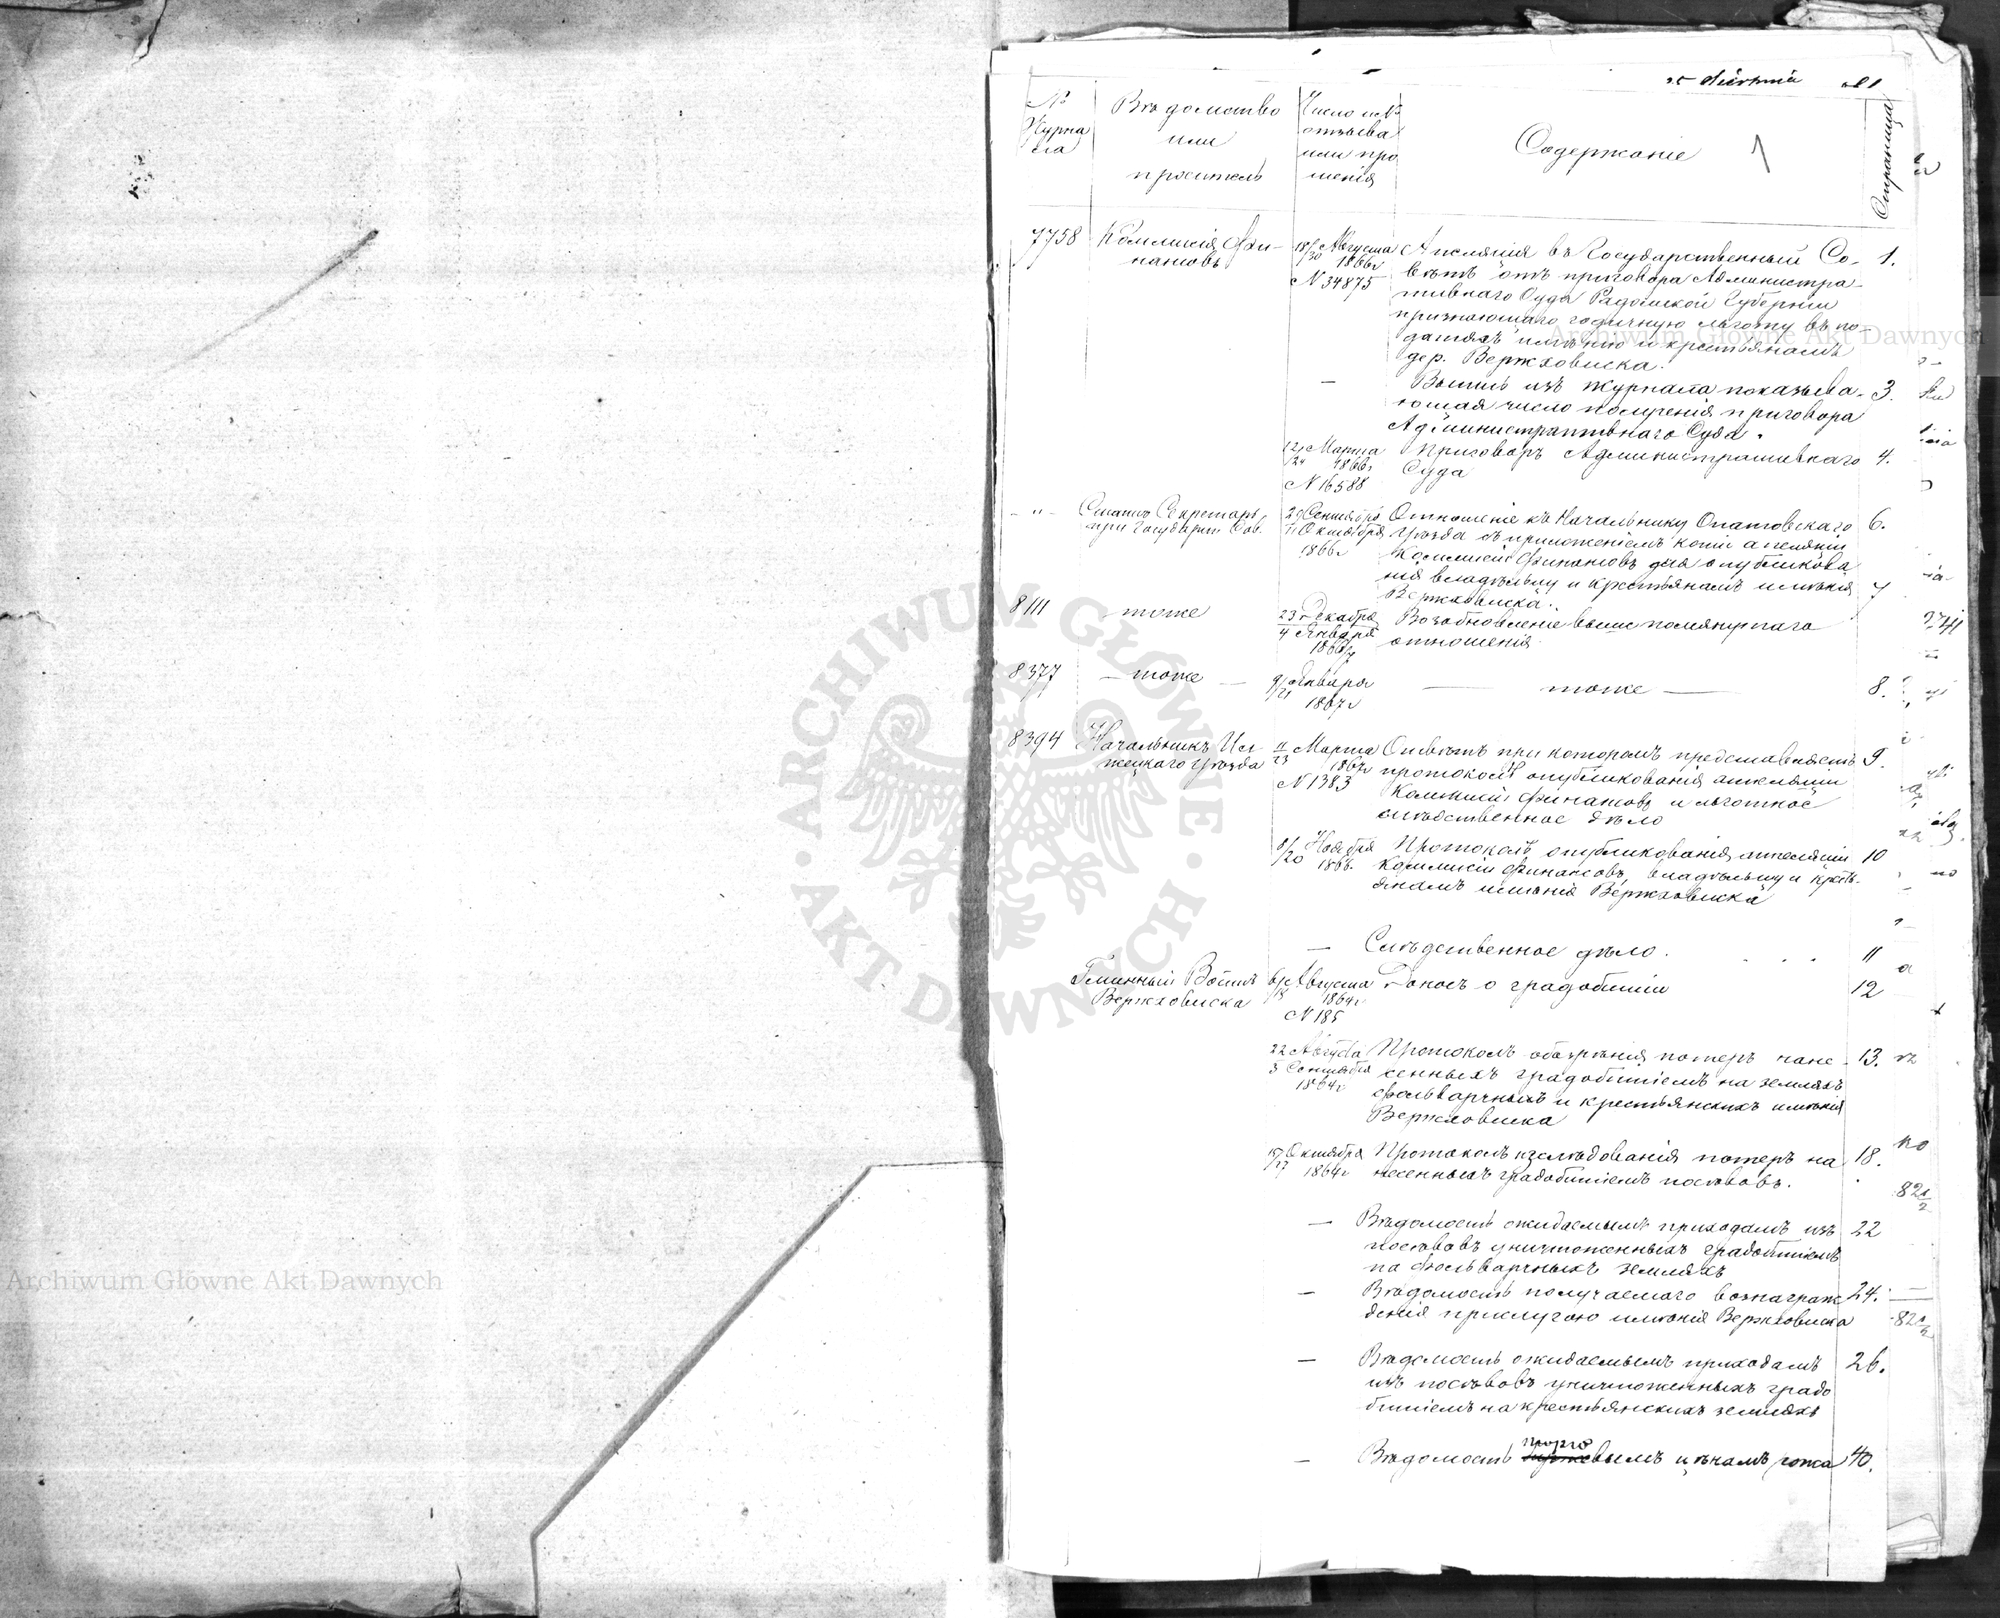 25 Sierpnia
№ Журнала
Вѣдомство
или
проситель
Число и №
отзыва
или про
шенія
Содержаніе
1
Страница
7758 Коммисія Фи-
нансовъ
18/30 Августа
1866 г
N 34875
Апеляція въ Государственный Со- 1.
вѣтъ отъ приговора Администра-
тивнаго Суда Радомской Губерніи
признающаго годичную льготу въ по-
датяхъ имѣнію и крестьянамъ
дер. Вержховиска.
— Выпись изъ журнала показыва- 3.
ющая число полученія приговора
Административнаго Суда.
12/24 Марта
1866 г
N 16588
Приговоръ Административнаго 4.
Суда
- " - Статсъ Секретарь
при Государст. Сов.
29 Сентября
11 Октября
1866 г
Отношеніе къ Начальнику Опатовскаго 6.
Уѣзда съ приложеніемъ копіи апеляціи
Коммисіи Финансовъ для опубликова
нія владѣльцу и крестьянамъ имѣнія
Вержховиска.
8111 тоже
23 Декабря
4 Января
1866/7
Возобновленіе выше помянутаго 7
отношенія
8377 — тоже —
9/21 Января
1867 г
— тоже — 8.
8394 Начальникъ Ил-
жецкаго Уѣзда
11/23 Марта
1867 г
N 1383
Отвѣтъ при которомъ представляетъ 9.
протоколъ опубликованія апеляціи
Коммисіи Финансовъ и льготное
слѣдственное дѣло
8/20 Ноября
1866.
Протоколъ опубликованія апеляціи 10
Коммисіи Финансовъ, владѣльцу и кресть-
янамъ имѣнія Вержховиска
— Слѣдственное дѣло. . . . 11
Гминный Войтъ
Вержховиска
6/18 Августа
1864 г
N 185
Доносъ о градобитіи 12
22 Августа
3 Сентября
1864 г
Протоколъ обозрѣнія потеръ нане- 13.
сенныхъ градобитіемъ на земляхъ
фольварчныхъ и крестьянскихъ имѣнія
Вержховиска
15/27 Октября
1864 г
Протоколъ изслѣдованія потеръ на 18.
несенныхъ градобитіемъ посѣвовъ.
— Вѣдомость ожидаемымъ приходамъ изъ 22
посѣвовъ уничтоженныхъ градобитіемъ
на фольварчныхъ земляхъ
— Вѣдомость получаемаго вознаграж 24.
денія прислугою имѣнія Вержховиска
— Вѣдомость ожидаемымъ приходамъ 26.
изъ посѣвовъ уничтоженныхъ градо
битіемъ на крестьянскихъ земляхъ
— Вѣдомость торго
вымъ цѣнамъ 40.
Archiwum Główne Akt Dawnych
Archiwum Główne Akt Dawnych
ARCHIWUM GŁÓWNE AKT DAWNYCH